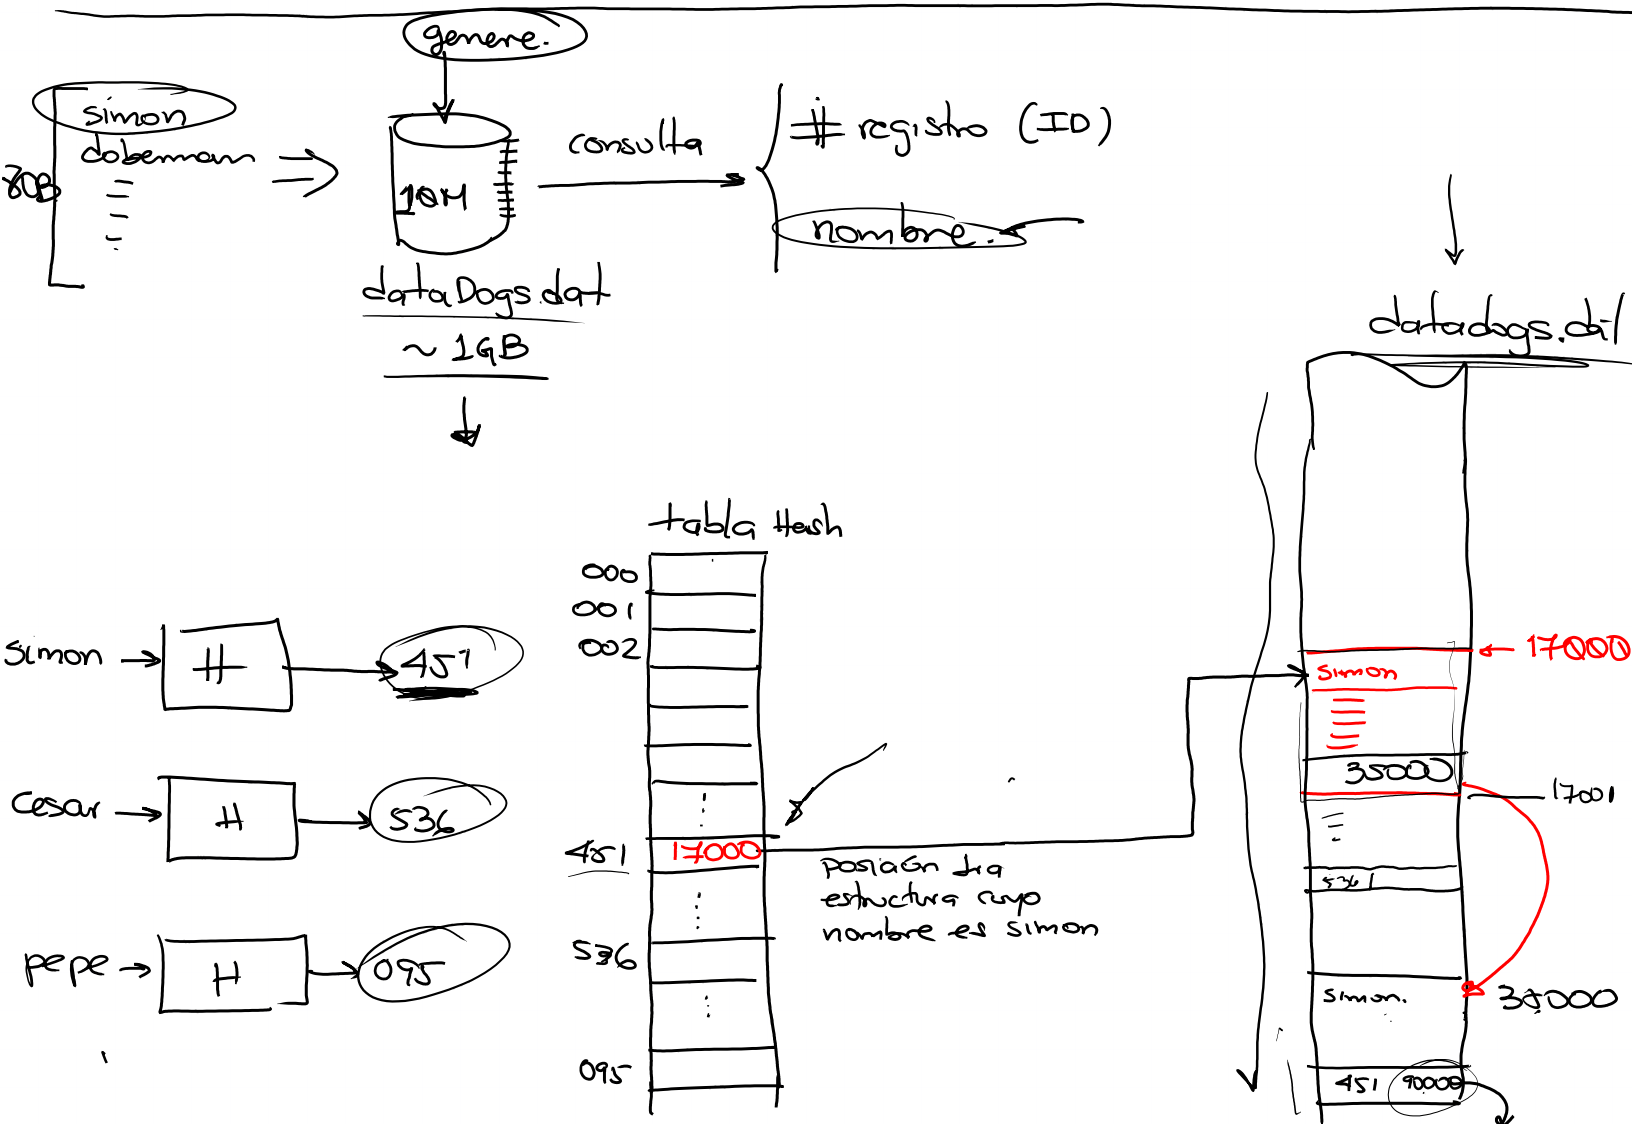 genere.
simon
doberman
80B
10M
consulta
# registro (ID)
nombre.
dataDogs.dat
~ 1GB
datadogs.dat
tabla Hash
000
001
002
simon → H → 451
cesar → H → 536
pepe → H → 095
451 17000
536
095
posición
estructura cuyo
nombre es simon
17000
simon
35000
17001
536 1
simon.
35000
451 90000